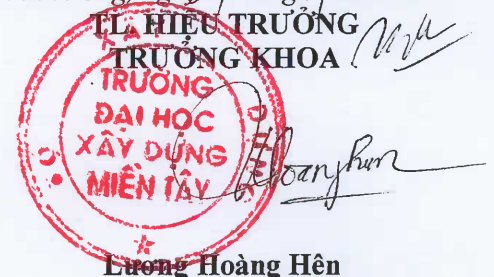 TL. HIỆU TRƯỞNG
TRƯỞNG KHOA
TRƯỜNG
ĐẠI HỌC
XÂY DỰNG
MIỀN TÂY
Lương Hoàng Hên